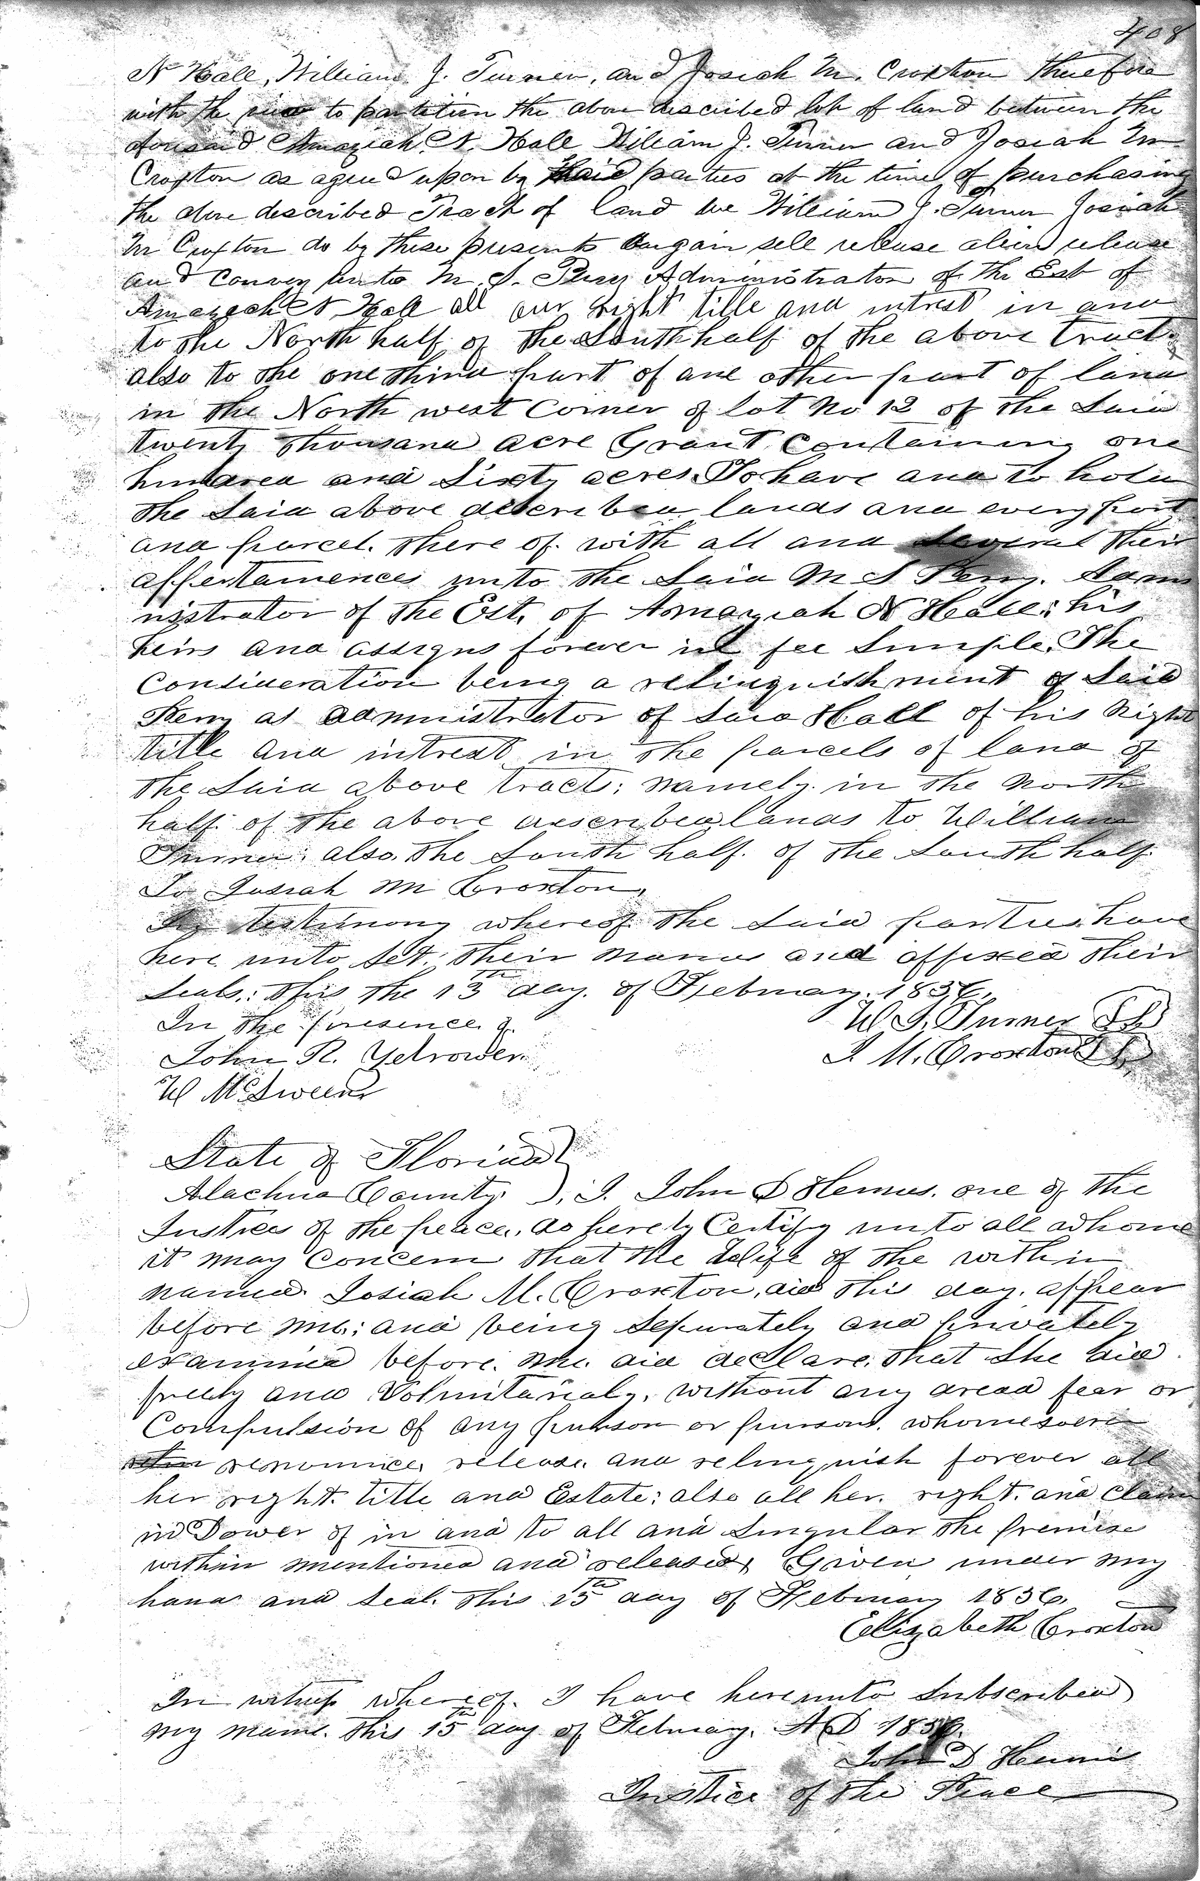 408
N Hall, William J. Turner, and Josiah M. Croxton therefore
with the view to partition the above described lot of land between the
aforesaid Amaziah N. Hall William J. Turner and Josiah M
Croxton as agreed upon by said parties at the time of purchasing
the above described Tract of land we William J. Turner Josiah
M Croxton do by these presents bargain sell release alien release
and convey unto M. S. Perry Administrator of the Est of
Amaziah N Hall all our right title and intrest in and
to the North half of the South half of the above tract.
also to the one third part of one other part of land
in the North west Corner of lot No 12 of the Said
twenty thousand acre Grant. Containing one
hundred and Sixty acres. To have and to hold
the Said above described lands and every part
and parcel. there of. with all and several their
appertainences unto the Said M S Perry. Admi
nistrator of the Est. of Amaziah N Hall: his
heirs and assigns forever in fee Simple. The
Consideration being a relinquishment of Said
Perry as administrator of Said Hall of his right
title and intrest in the parcels of land of
the Said above tract: namely. in the North
half. of the above described lands to William
Turner: also. the South half. of the South half.
To Josiah M Croxton.
In testimony whereof the Said parties have
here unto Set. their names and affixed their
Seals.: this the 13th day. of February. 1856.
In the presence of. W J. Turner LS
John R. Yelrower. J. M. Croxton LS
W McSween
State of Florida
Alachua County. ). I. John D Hemus. one of the
Justices of the peace. do hereby Certify unto all whome
it may concern that the Wife of the within
named. Josiah M. Croxton, did this day. appear
before me.: and being Seperately and privately
examined before. me. did declare. that She did
freely and Voluntarialy. without any dread fear or
Compulsion of any purson or pursons. whomesoever
renounce. release. and relinquish forever all
her right. title and Estate: also all her. right. and Claim
in Dower of in and to all and Singular the premise
within mentioned and released. Given under my
hand and Seal. this 15th day of February 1856.
Elizabeth Croxton
In witness whereof. I have hereunto Subscribed
my name. this 15th day of February. A D 1856.
John D Hemus
Justice of the Peace